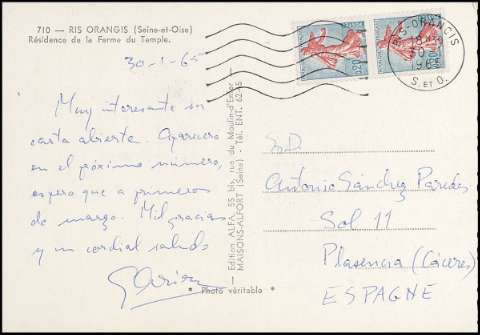 710 — RIS ORANGIS (Seine-et-Oise)
Résidence de la Ferme du Temple.
30-1-65
RIS-ORANGIS
S. ET O.
0,20
0,20
Muy interesante su
carta abierta. Aparecerá
en el próximo número,
espero que a primeros
de marzo. Mil gracias
y un cordial saludo
Edition ALFA, 55 bis, rue du Moulin-d'Enfer
MAISONS-ALFORT (Seine) - Tél. ENT. 62-
* Photo véritable *
S.D.
Antonio Sánchez Paredes
Sol 11
Plasencia (Cáceres)
ESPAGNE